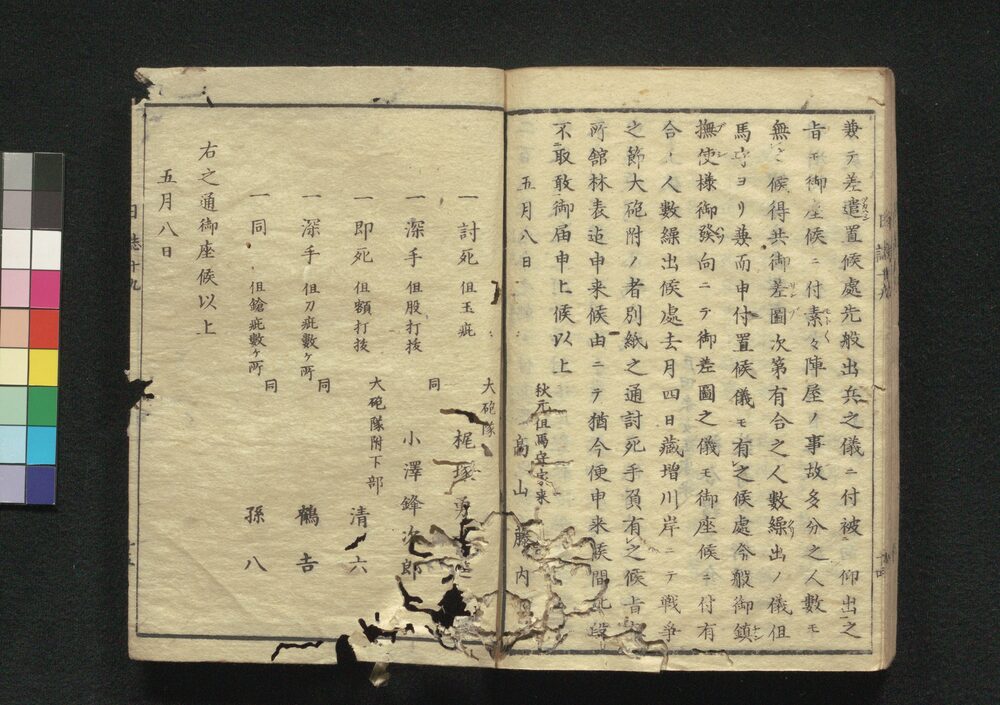 兼テ差遣置候處先般出兵之儀ニ付被 仰出之
旨モ御座候ニ付素々陣屋ノ事故多分之人數モ
無之候得共御差圖次第有合之人數繰出ノ儀但
馬守ヨリ兼而申付置候儀モ有之候處今般御鎮
撫使様御發向ニテ御差圖之儀モ御座候ニ付有
合ノ人數繰出候處去月四日藏増川岸ニテ戰爭
之節大砲附ノ者別紙之通討死手負有之候旨
所舘林表迄申来候由ニテ猶今便申来候間此段
不取敢御届申上候以上
秋元但馬守家来
五月八日 高山藤内
大砲隊
一討死 但玉疵 梶塚勇
同
一深手 但股打抜 小澤鋒次郎
大砲隊附下部
一即死 但額打抜 清六
同
一深手 但刀疵數ヶ所 鶴吉
同
一同 但鎗疵數ヶ所 孫八
右之通御座候以上
五月八日
日誌十九